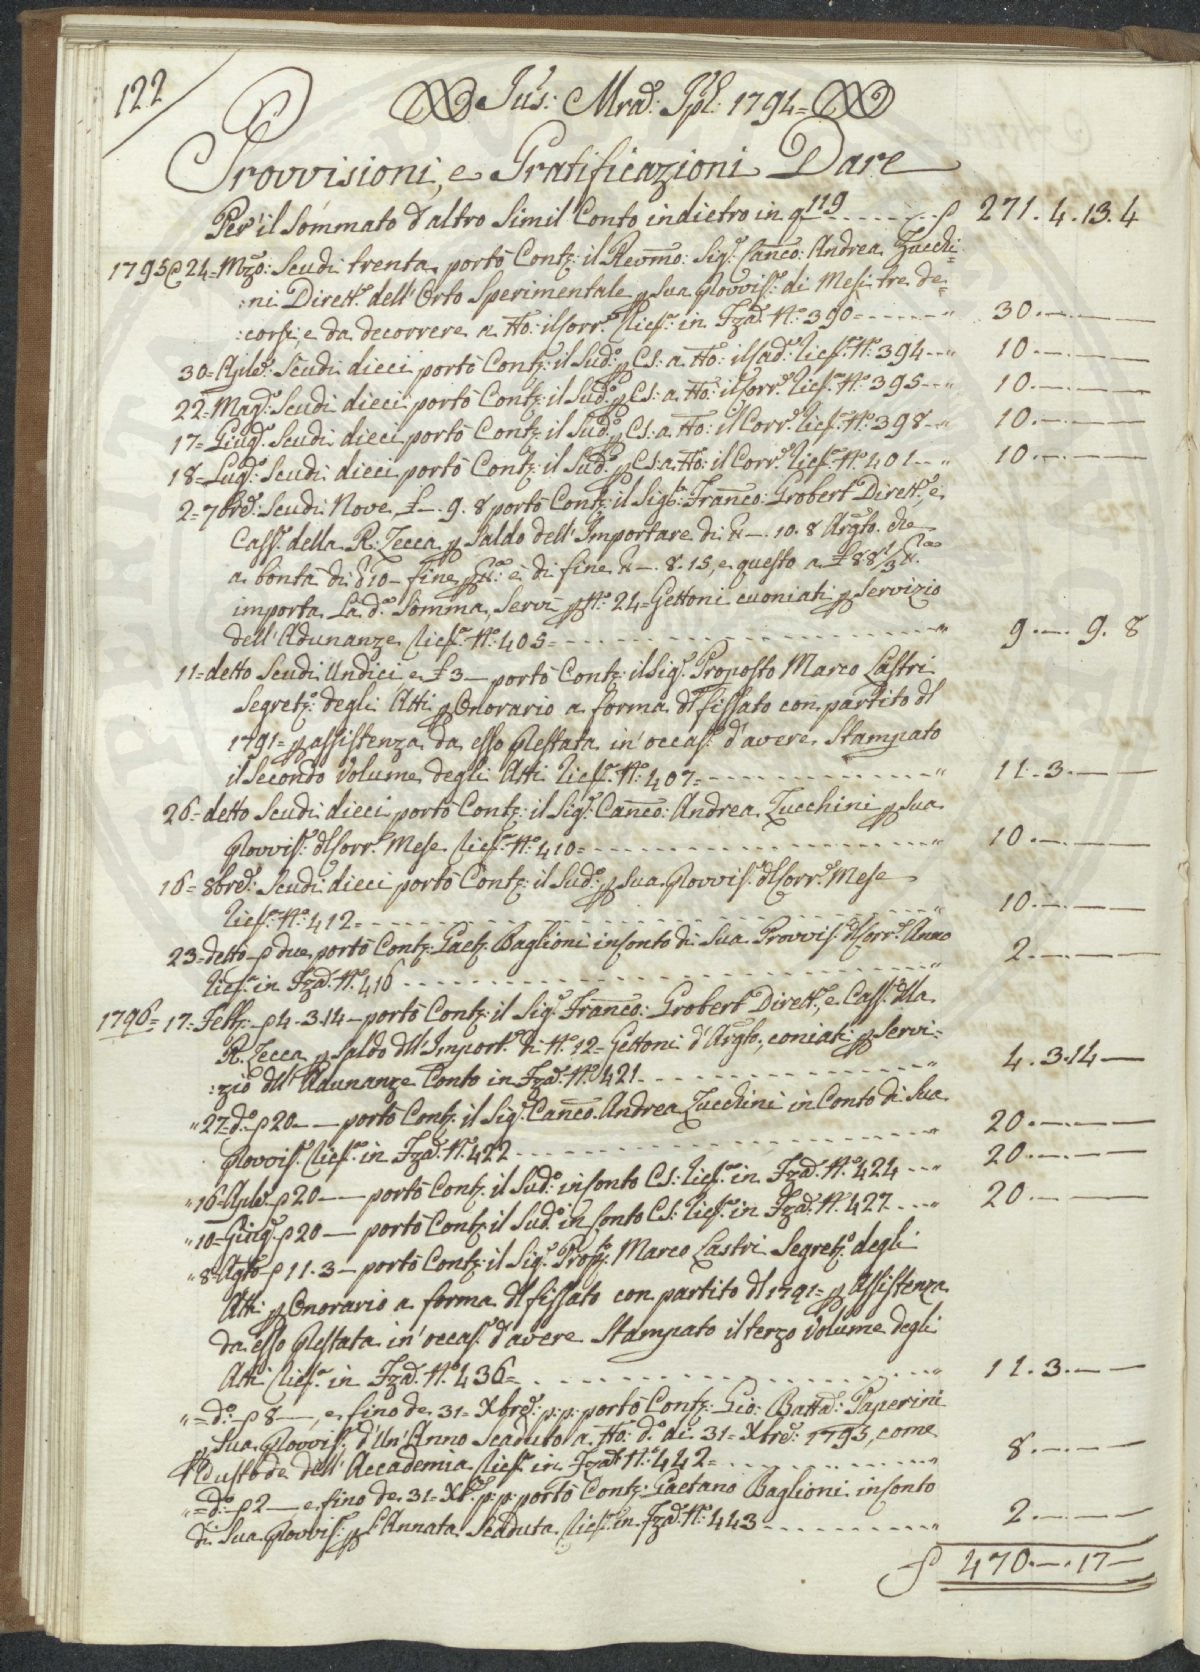 122
Jus: Mrad: Jpl: 1794=
Provvisioni, e Gratificazioni Dare
Per il Sommato d'altro Simil Conto indietro in q 119 271.4.13.4
1795 @ 24= Mzo: Scudi trenta portò Contz: il Revmo: Sigr. Canco: Andrea Zucchi=
:ni Dirett. dell'Orto Sperimentale p Sua Provvis: di Mesi tre de=
:corsi, e da decorrere a Tto: il Corr. Ricef. in Fzad. N.o 390= 30.—.—
30= Aple: Scudi dieci portò Contz: il Sudo: p Cs: a Tto: il Sad: Ricef. N.o 394 10.—.—
22= Mago: Scudi dieci portò Contz: il Sudo: p Cs: a Tto: il Corr. Ricef. N.o 395 10.—.—
17= Giugo: Scudi dieci portò Contz: il Sudo: p Cs: a Tto: il Corr. Ricef. N.o 398 10.—.—
18= Lugo: Scudi dieci portò Contz: il Sudo: p Cs: a Tto: il Corr. Ricef. N.o 401 10.—.—
2= 7bre: Scudi Nove, £ —. 9. 8 portò Contz: il Sigr: Franco: Grobert Dirett., e
Cass. della R. Zecca p Saldo dell'Importare di —. 10. 8 Argto. che
a bontà di 10— fine è di fine —. 8. 15, e questo a £ 88 1/3
importa la da. Somma, Servì p No: 24= Gettoni cuoniati p Servizio
dell'Adunanze Ricef. N.o 405= 9.—. 9. 8
11= detto Scudi Undici e £ 3— portò Contz: il Sigr. Proposto Marco Lastri
Segretz: degli Atti p Onorario a forma dl fissato con partito dl
1791= p assistenza da esso Prestata in' occas. d'avere Stampato
il Secondo Volume degli Atti Ricef. N.o 407= 11.3.—
26= detto Scudi dieci portò Contz: il Sigr. Canco: Andrea Zucchini p Sua
Provvis. dl Corr. Mese Ricef. N.o 410= 10.—.—
16= 8bre: Scudi dieci portò Contz: il Sudo: p Sua Provvis. dl Corr. Mese
Ricef. N.o 412= 10.—.—
23= detto due portò Contz: Gaetz. Baglioni in Conto di Sua Provvis. dl Corr. Anno
Ricef. in Fzad. N.o 416 2.—.—
1796= 17= Febz. 4.3.14— portò Contz: il Sigr. Franco: Grobert Dirett., e Cass. dlla
R. Zecca p Saldo dll'Import. di N.o 12= Gettoni d'Argto., coniati p Servi=
:zio dll'Adunanze Conto in Fzad. N.o 421 4.3.14—
" 27= do. 20 —— portò Contz: il Sigr. Canco. Andrea Zucchini in Conto di Sua
Provvis. Ricef. in Fzad. N.o 422 20.—.—
" 16= Aple. 20 —— portò Contz. il Sudo: in Conto Cs: Ricef. in Fzad. N.o 424 20.—.—
" 10= Giugo. 20 — portò Contz: il Sudo: in Conto Cs: Ricef. in Fzad. N.o 427 20.—.—
" 8= Agto. 11.3— portò Contz: il Sigr. Propo. Marco Lastri Segretz. degli
Atti p Onorario a forma dl fissato con partito dl 1791= p Assistenza
da esso Prestata in' occas. d'avere Stampato il terzo Volume degli
Atti Ricef. in Fzad. N.o 436= 11.3.—
" = do. 8 —, e fino de 31= Xbre: p: p: portò Contz: Gio: Batta: Paperini
p Sua Provvis. d'Un'Anno Scaduto a Tto: do. di 31= Xbre: 1795, come
Custode dell'Accademia Ricef. in Fzad. N.o 442= 8.—.—
" = do. 2 — e fino de 31= Xbre. p: p: portò Contz: Gaetano Baglioni in Conto
di Sua Provvis. p l'Annata Scaduta Ricef. in Fzad. N.o 443 2.—.—
470.—.17—